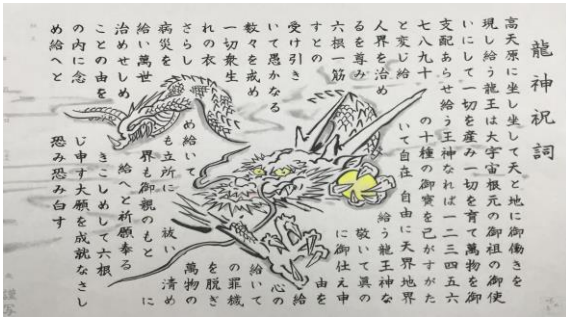 龍神祝詞
高天原に坐し坐して天と地に御働きを
現し給う龍王は大宇宙根元の御祖の御使
いにして一切を産み一切を育て萬物を御
支配あらせ給う王神なれば一二三四五六
七八九十の十種の御寶を己がすがた
と変じ給いて自在自由に天界地界
人界を治め給う龍王神な
るを尊み敬いて眞の
六根一筋に御仕え申
すとの由を
受け引き給
いて愚かなる心の
数々を戒め給いて
一切衆生の罪穢
れの衣を脱ぎ
さらしめ給いて萬物の
病災をも立所に祓い清め
給い萬世界も御親のもとに
治めせしめ給へと祈願奉る
ことの由をきこしめして六根
の内に念じ申す大願を成就なさし
め給へと恐み恐み白す